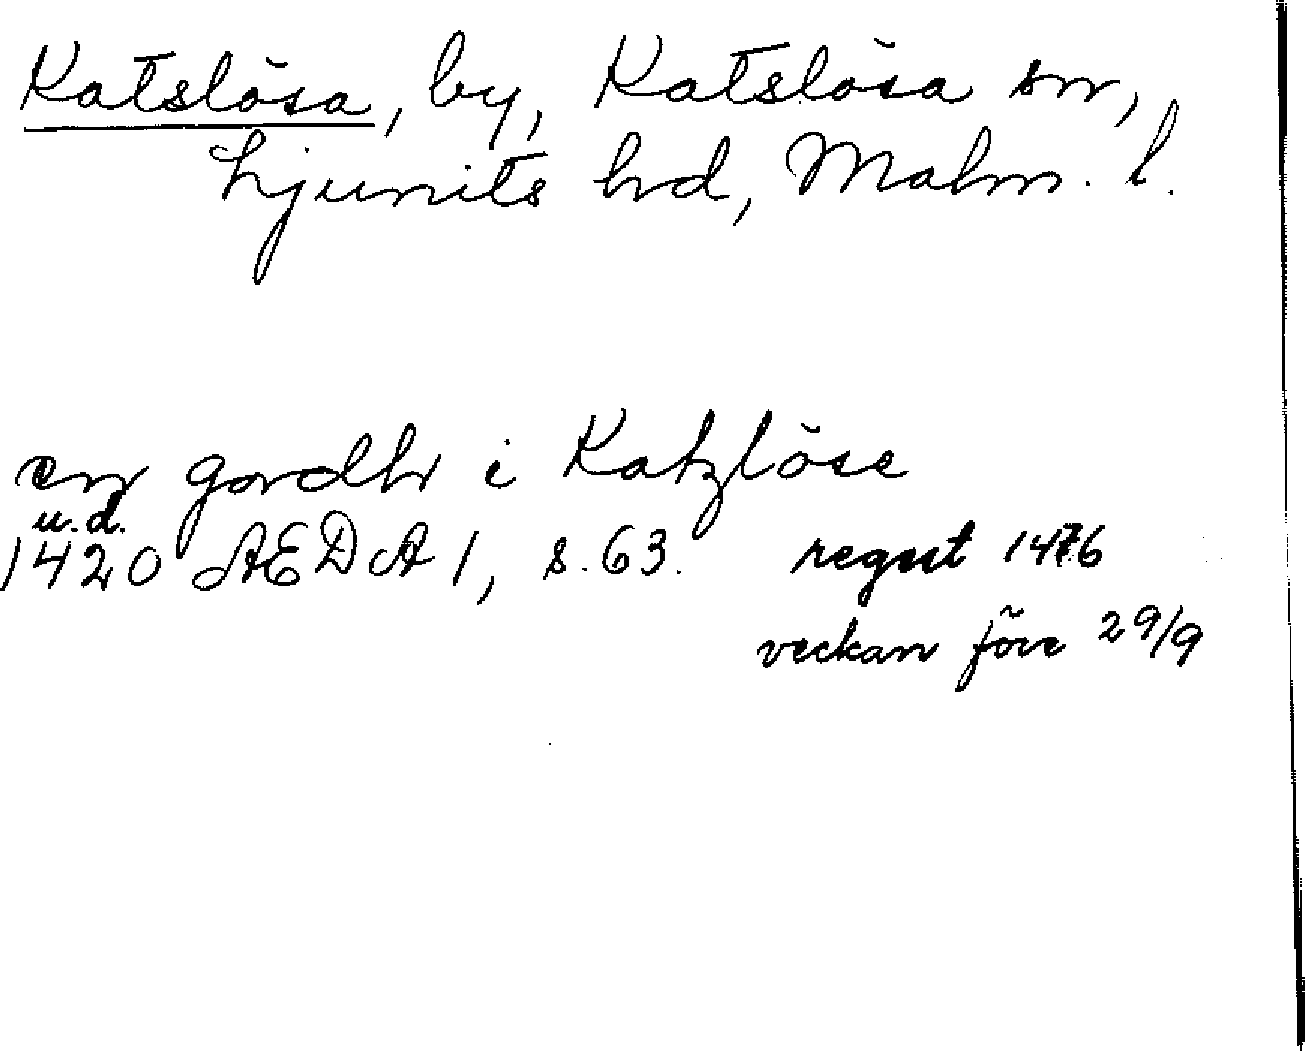 Katslösa, by, Katslösa sn,
Ljunits hd, Malm. l.
en gordh i Katzlöse
u.d.
1420 AEDA 1, s. 63. regest 1476
veckan före 29/9